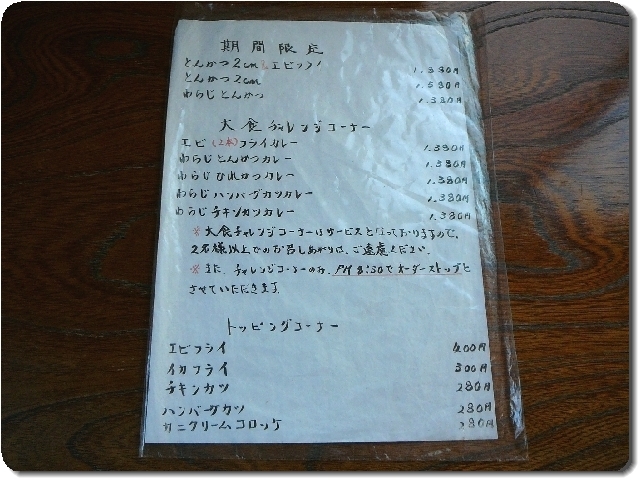 期間限定
とんかつ2cm とエビフライ 1.380円
とんかつ2cm 1.580円
わらじとんかつ 1.380円
大食チャレンジコーナー
エビ(12本)フライカレー 1.380円
わらじとんかつカレー 1.380円
わらじひれかつカレー 1.380円
わらじハンバーグカツカレー 1.380円
わらじチキンカツカレー 1.380円
※大食チャレンジコーナーはサービスとなっておりますので、
2名様以上でのお召しあがりは、ご遠慮ください。
※また、チャレンジコーナーのみ、PM8:30でオーダーストップと
させていただきます。
トッピングコーナー
エビフライ 400円
イカフライ 300円
チキンカツ 280円
ハンバーグカツ 280円
カニクリームコロッケ 280円